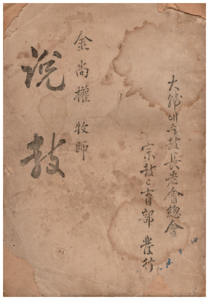 大韓예수敎長老會總會
宗敎々育部 發行
金尚權 牧師
說敎